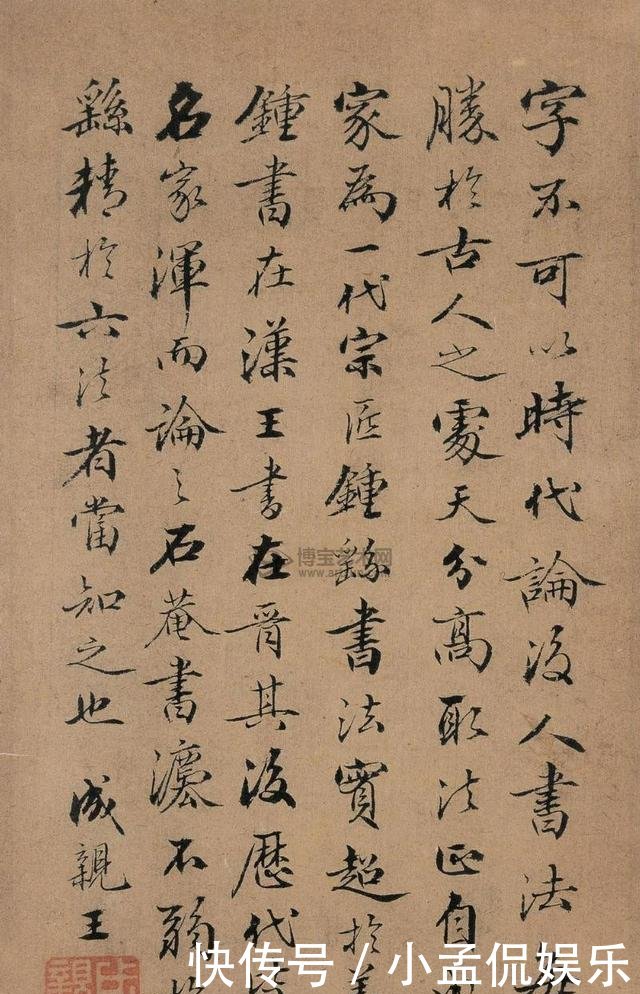 字不可以時代論後人書法
勝於古人之處天分高取法正自
家為一代宗匠鍾繇書法實超於
鍾書在漢王書在晉其後歷代
名家渾而論之石菴書不
繇精於六法者當知之也 成親王
博宝艺术网
快传号 / 小孟侃娱乐